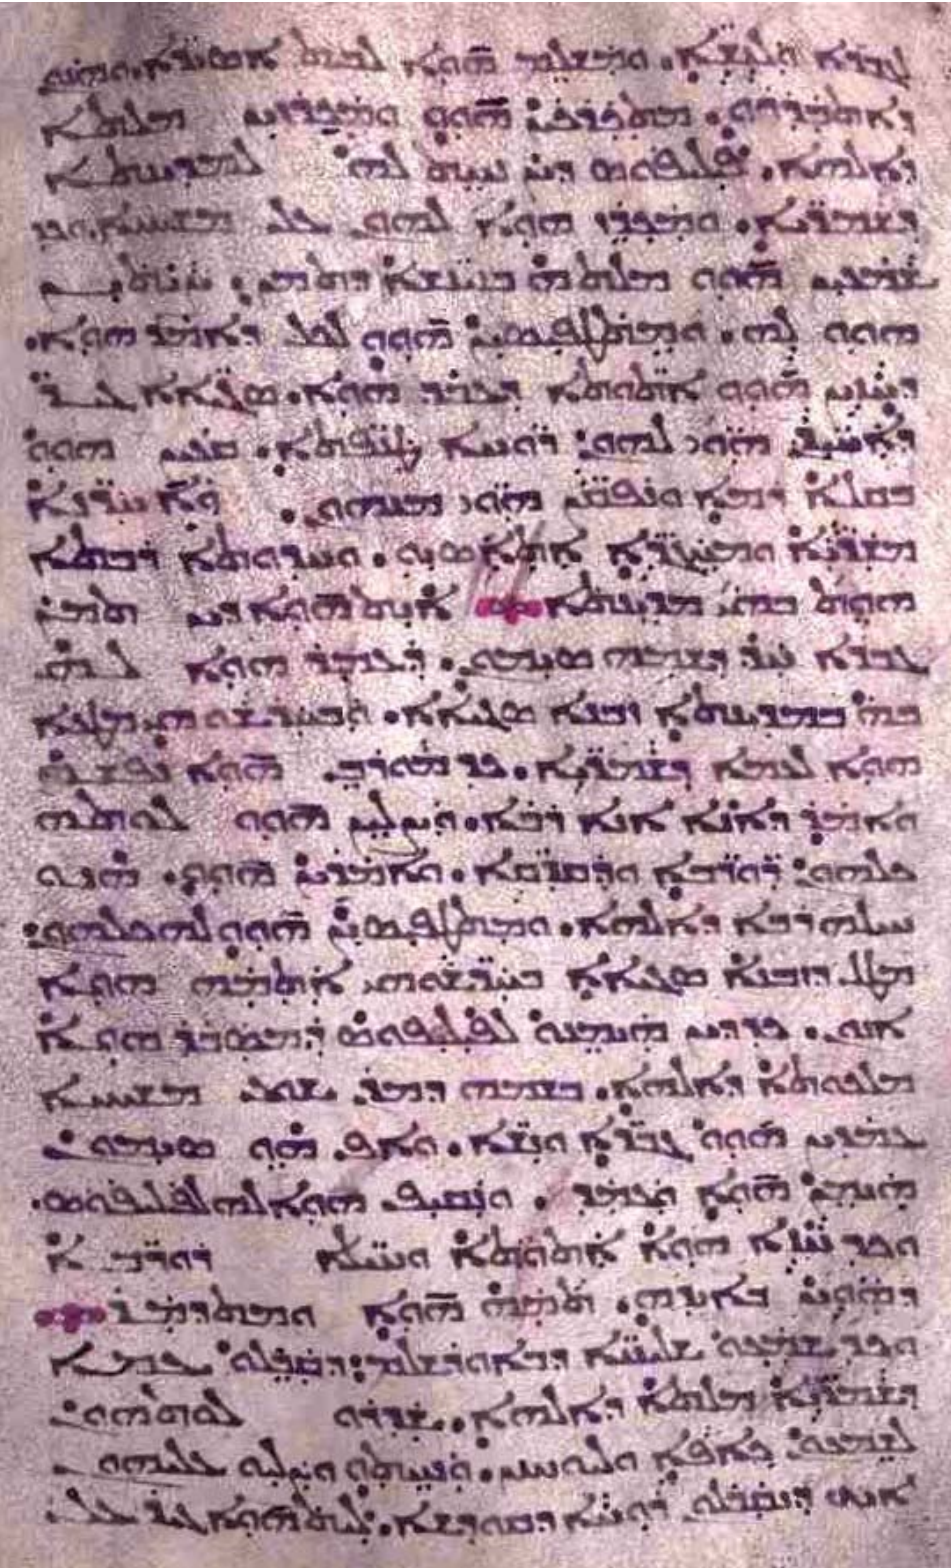 ܓܒܪܐ ܘܠܢܫܐ. ܘܡܫܠܡ ܗܘܐ ܠܒܝܬ ܐܣܝܪܐ. ܘܗܢܘܢ
ܕܐܬܒܕܪܘ. ܡܬܟܪܟܝܢ ܗܘܘ ܘܡܟܪܙܝܢ ܡܠܬܐ
ܕܐܠܗܐ. ܦܝܠܝܦܘܣ ܕܝܢ ܢܚܬ ܠܗ ܠܡܕܝܢܬܐ
ܕܫܡܪܝܐ. ܘܡܟܪܙ ܗܘܐ ܠܗܘܢ ܥܠ ܡܫܝܚܐ. ܘܟܕ
ܫܡܥܝܢ ܗܘܘ ܡܠܬܗ ܒܢܝܢܫܐ ܕܬܡܢ. ܨܝܬܝܢ
ܗܘܘ ܠܗ. ܘܡܬܛܦܝܣܝܢ ܗܘܘ ܠܟܠ ܕܐܡܪ ܗܘܐ.
ܕܚܙܝܢ ܗܘܘ ܐܬܘܬܐ ܕܥܒܕ ܗܘܐ. ܣܓܝܐܐ ܓܝܪ
ܕܐܚܝܕܢ ܗܘܝ ܠܗܘܢ ܪܘܚܐ ܛܢܦܬܐ. ܩܥܝܢ ܗܘܘ
ܒܩܠܐ ܪܡܐ ܘܢܦܩܢ ܗܘܝ ܡܢܗܘܢ. ܘܐܚܪܢܐ
ܡܫܪܝܐ ܘܚܓܝܪܐ ܐܬܐܣܝܘ. ܘܚܕܘܬܐ ܪܒܬܐ
ܗܘܬ ܒܗܝ ܡܕܝܢܬܐ ܀ ܐܝܬ ܗܘܐ ܕܝܢ ܬܡܢ
ܓܒܪܐ ܚܕ ܕܫܡܗ ܣܝܡܘܢ. ܕܥܡܪ ܗܘܐ ܠܗ
ܒܗ ܒܡܕܝܢܬܐ ܙܒܢܐ ܣܓܝܐܐ. ܘܒܚܪܫܘܗܝ ܡܛܥܐ
ܗܘܐ ܠܥܡܐ ܕܫܡܪܝܐ. ܟܕ ܡܘܪܒ ܗܘܐ ܢܦܫܗ
ܘܐܡܪ ܕܐܢܐ ܐܢܐ ܪܒܐ. ܘܨܠܝܢ ܗܘܘ ܠܘܬܗ
ܟܠܗܘܢ ܪܘܪܒܐ ܘܙܥܘܪܐ. ܘܐܡܪܝܢ ܗܘܘ. ܗܢܘ
ܚܝܠܗ ܪܒܐ ܕܐܠܗܐ. ܘܡܬܛܦܝܣܝܢ ܗܘܘ ܠܗ ܟܠܗܘܢ:
ܡܛܠ ܕܙܒܢܐ ܣܓܝܐܐ ܒܚܪܫܘܗܝ ܐܬܡܗ ܗܘܐ
ܐܢܘܢ. ܟܕ ܕܝܢ ܗܝܡܢܘ ܠܦܝܠܝܦܘܣ ܕܡܣܒܪ ܗܘܐ
ܡܠܟܘܬܐ ܕܐܠܗܐ. ܒܫܡܗ ܕܡܪܢ ܝܫܘܥ ܡܫܝܚܐ
ܥܡܕܝܢ ܗܘܘ ܓܒܪܐ ܘܢܫܐ. ܘܐܦ ܗܘ ܣܝܡܘܢ
ܗܝܡܢ ܗܘܐ ܘܥܡܕ. ܘܢܩܝܦ ܗܘܐ ܠܗ ܠܦܝܠܝܦܘܣ.
ܘܟܕ ܚܙܐ ܗܘܐ ܐܬܘܬܐ ܘܚܝܠܐ ܪܘܪܒܐ
ܕܗܘܝܢ ܒܐܝܕܗ. ܬܡܗ ܗܘܐ ܘܡܬܕܡܪ ܀
ܘܟܕ ܫܡܥܘ ܫܠܝܚܐ ܕܒܐܘܪܫܠܡ: ܕܩܒܠܘ ܥܡܐ
ܕܫܡܪܝܐ ܡܠܬܐ ܕܐܠܗܐ. ܫܕܪܘ ܠܘܬܗܘܢ
ܠܫܡܥܘܢ ܟܐܦܐ ܘܠܝܘܚܢܢ. ܘܢܚܬܘ ܘܨܠܝܘ ܥܠܝܗܘܢ
ܐܝܟ ܕܢܩܒܠܘܢ ܪܘܚܐ ܕܩܘܕܫܐ. ܠܝܬ ܗܘܐ ܓܝܪ ܥܠ